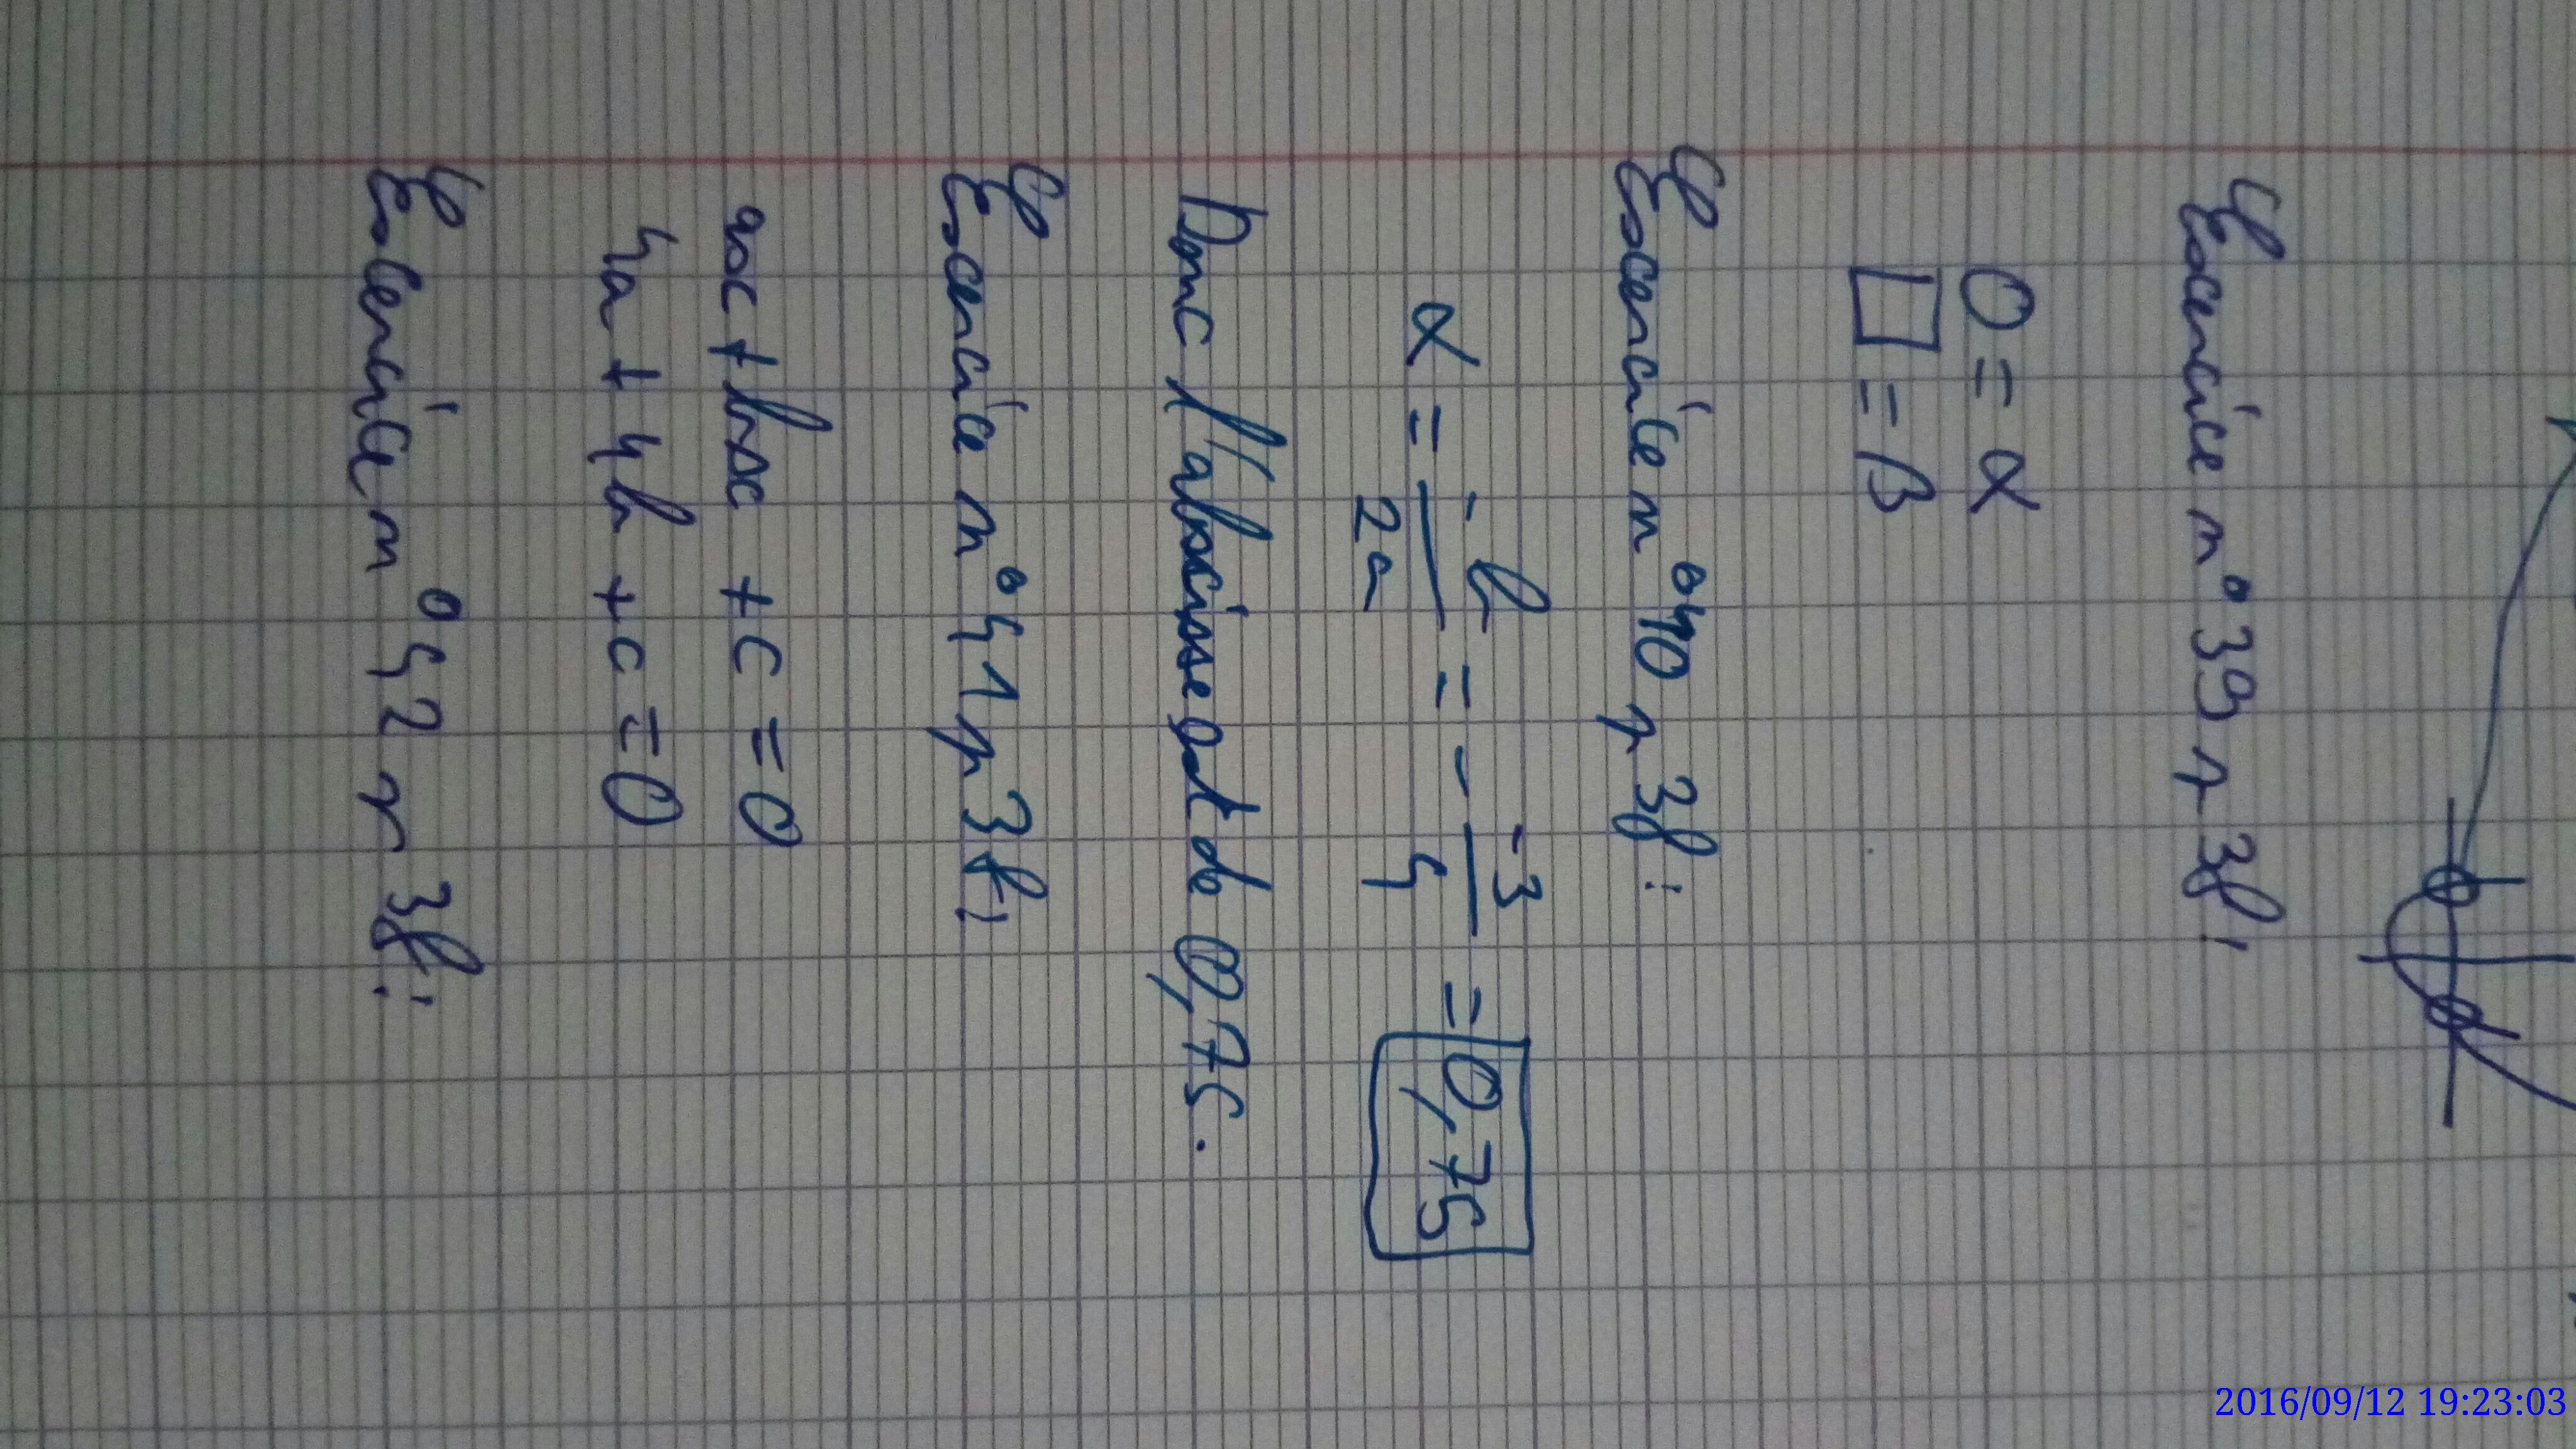 Exercice n°39 p 38:
O = α
□ = β
Exercice n°40 p 38:
α = -b/2a = - -3/4 = 0,75
Donc l'abscisse est de 0,75.
Exercice n°41 p 38:
ax + bx + c = 0
4a + 4b + c = 0
Exercice n°42 p 38:
2016/09/12 19:23:03